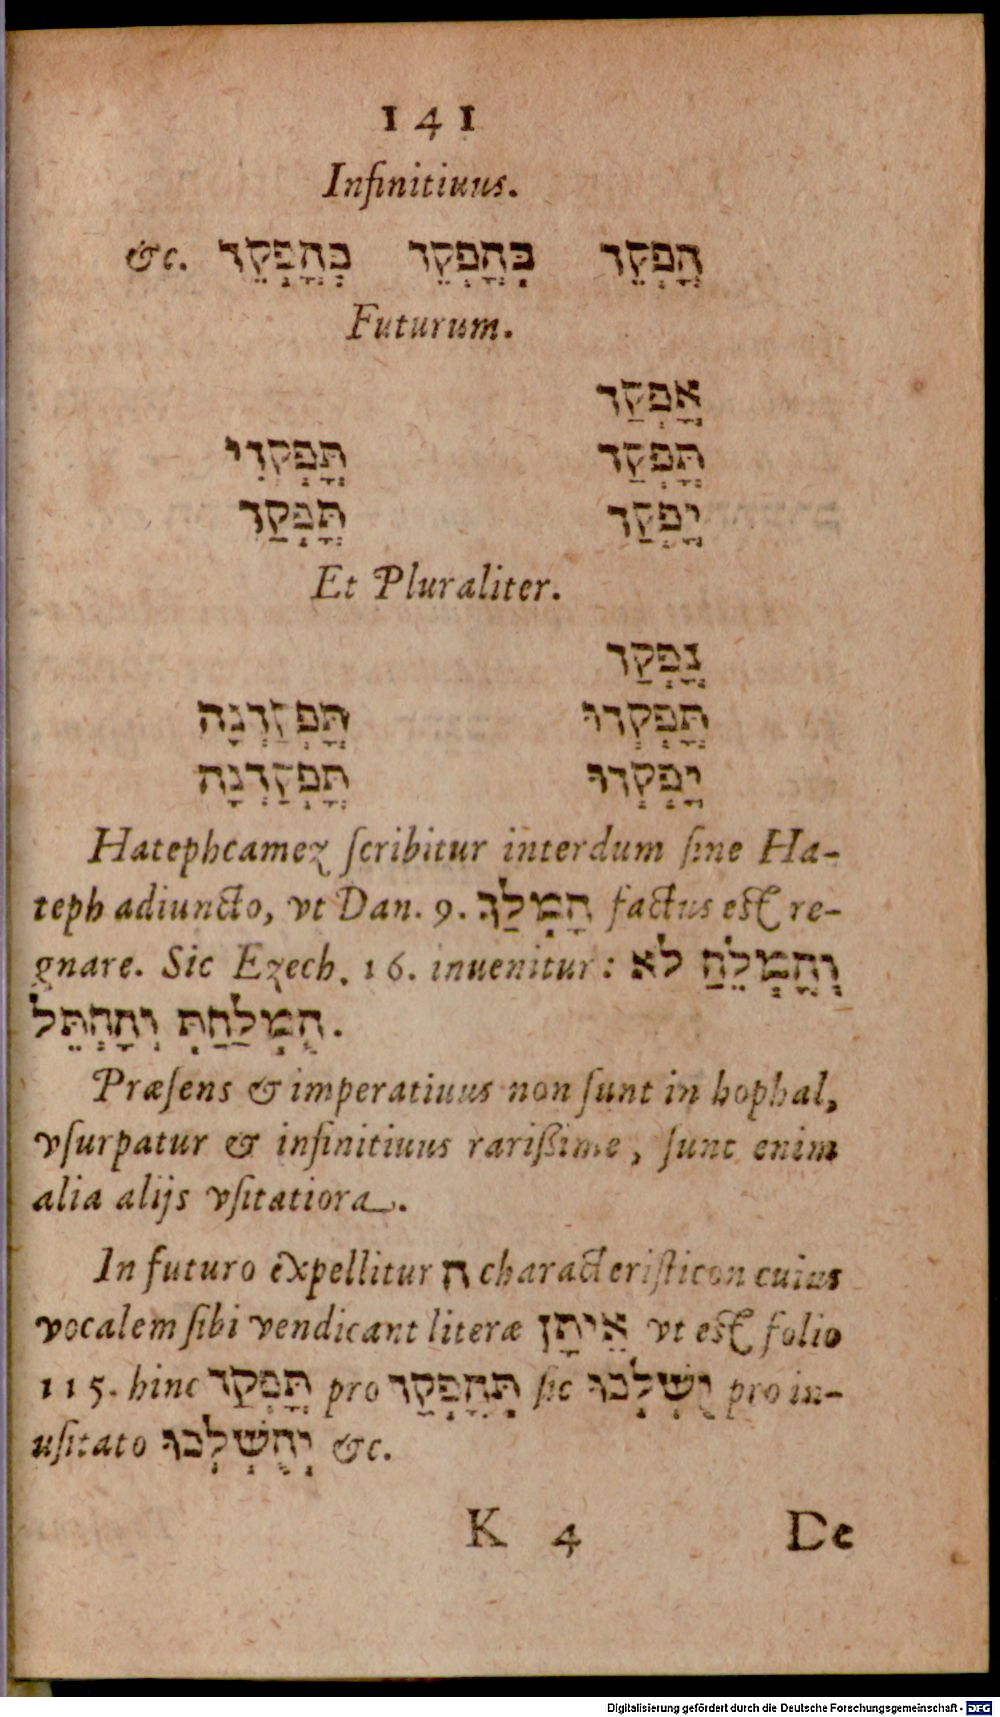 141
Infinitiuus.
הֳָפְקֵד בְּהֳָפְקֵד כְּהֳָפְקֵד &c.
Futurum.
אֳָפְקַד
תֳָּפְקַד תֳָּפְקְדִי
יֳָפְקַד תֳָּפְקַד
Et Pluraliter.
נֳָפְקַד
תֳָּפְקְדוּ תֳָּפְקַדְנָה
יֳָפְקְדוּ תֳָּפְקַדְנָה
Hatephcamez ſcribitur interdum ſine Ha-
teph adiuncto, vt Dan. 9. הָמְלַךְ factus eſt re-
gnare. Sic Ezech. 16. inuenitur: וְהֳָמְלֵחַ לֹא
הֻמְלַחַתְּ וְהָחְתֵּל.
Præſens & imperatiuus non ſunt in hophal,
vſurpatur & infinitiuus rariſſime, ſunt enim
alia alijs vſitatiora.
In futuro expellitur ה characteriſticon cuius
vocalem ſibi vendicant literæ אֵיתָן vt eſt folio
115. hinc תֳָּפְקַד pro תְּהֳָפְקַד ſic יֻשְׁלְכוּ pro in-
uſitato יְהֻשְׁלְכוּ &c.
K 4 De
Digitalisierung gefördert durch die Deutsche Forschungsgemeinschaft - DFG